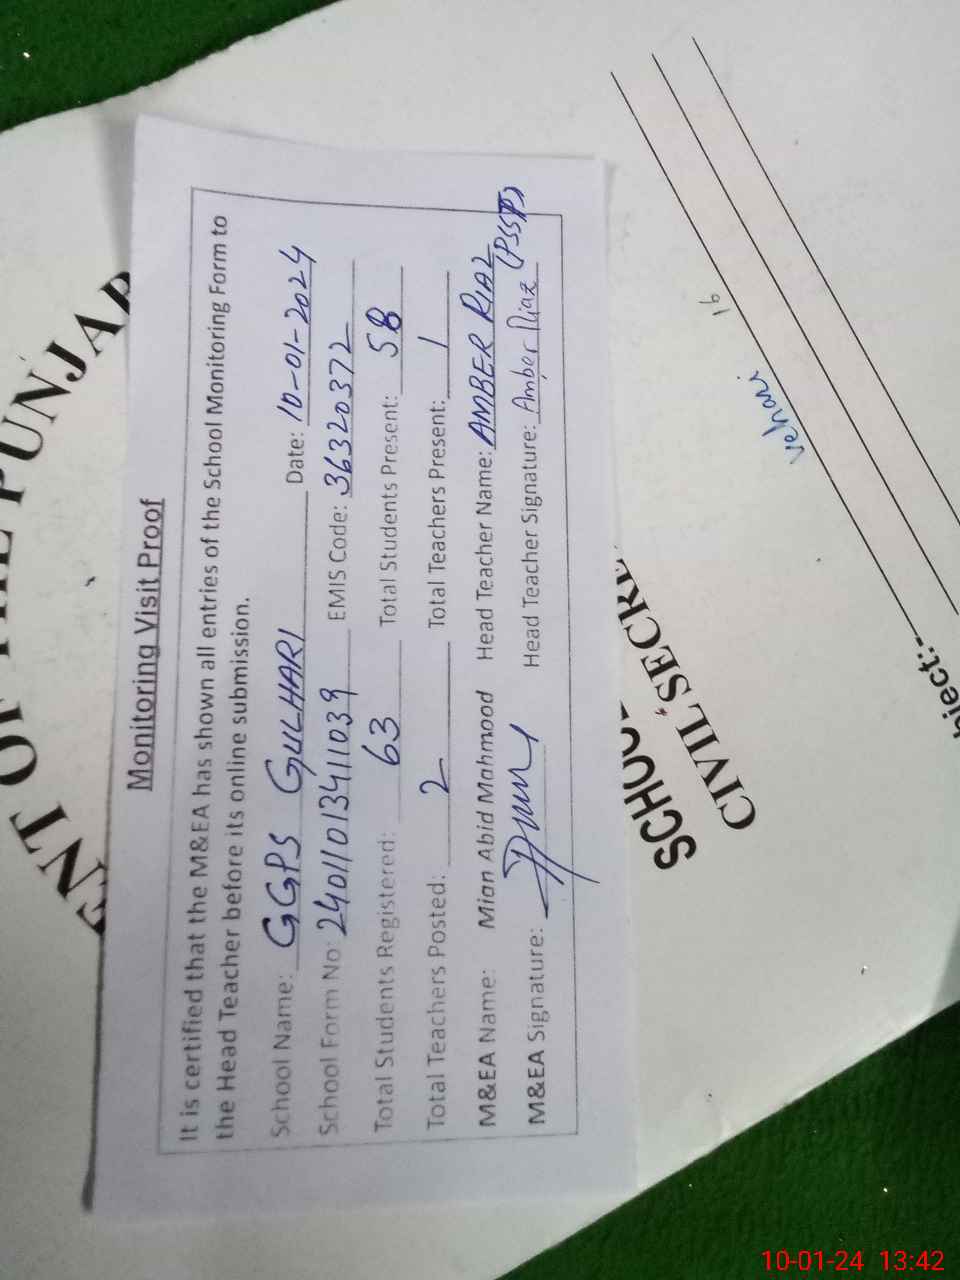 ENT OF THE PUNJAB
Monitoring Visit Proof
It is certified that the M&EA has shown all entries of the School Monitoring Form to
the Head Teacher before its online submission.
School Name: GGPS GULHARI Date: 10-01-2024
School Form No: 2401101341039 EMIS Code: 36320372
Total Students Registered: 63 Total Students Present: 58
Total Teachers Posted: 2 Total Teachers Present: 1
M&EA Name: Mian Abid Mahmood Head Teacher Name: AMBER RIAZ
M&EA Signature: Head Teacher Signature: Amber Riaz (PSSP)
SCHOO
CIVIL SECRE
bject:-
Vehari
16
10-01-24 13:42